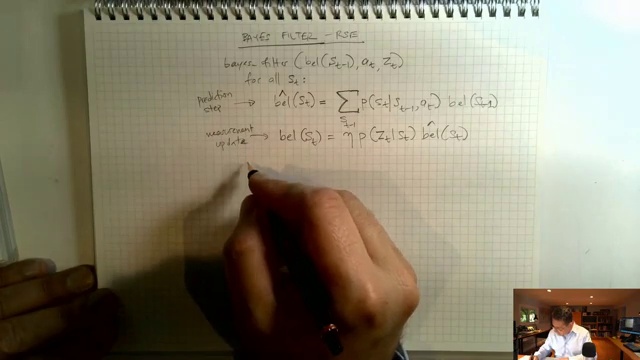 BAYES FILTER - RSE
bayes filter (bel(S_{t-1}), a_t, z_t)
for all S_t:
Prediction step → \hat{bel}(S_t) = \sum_{S_{t-1}} p(S_t | S_{t-1}, a_t) bel(S_{t-1})
measurement update → bel(S_t) = η p(Z_t | S_t) \hat{bel}(S_t)